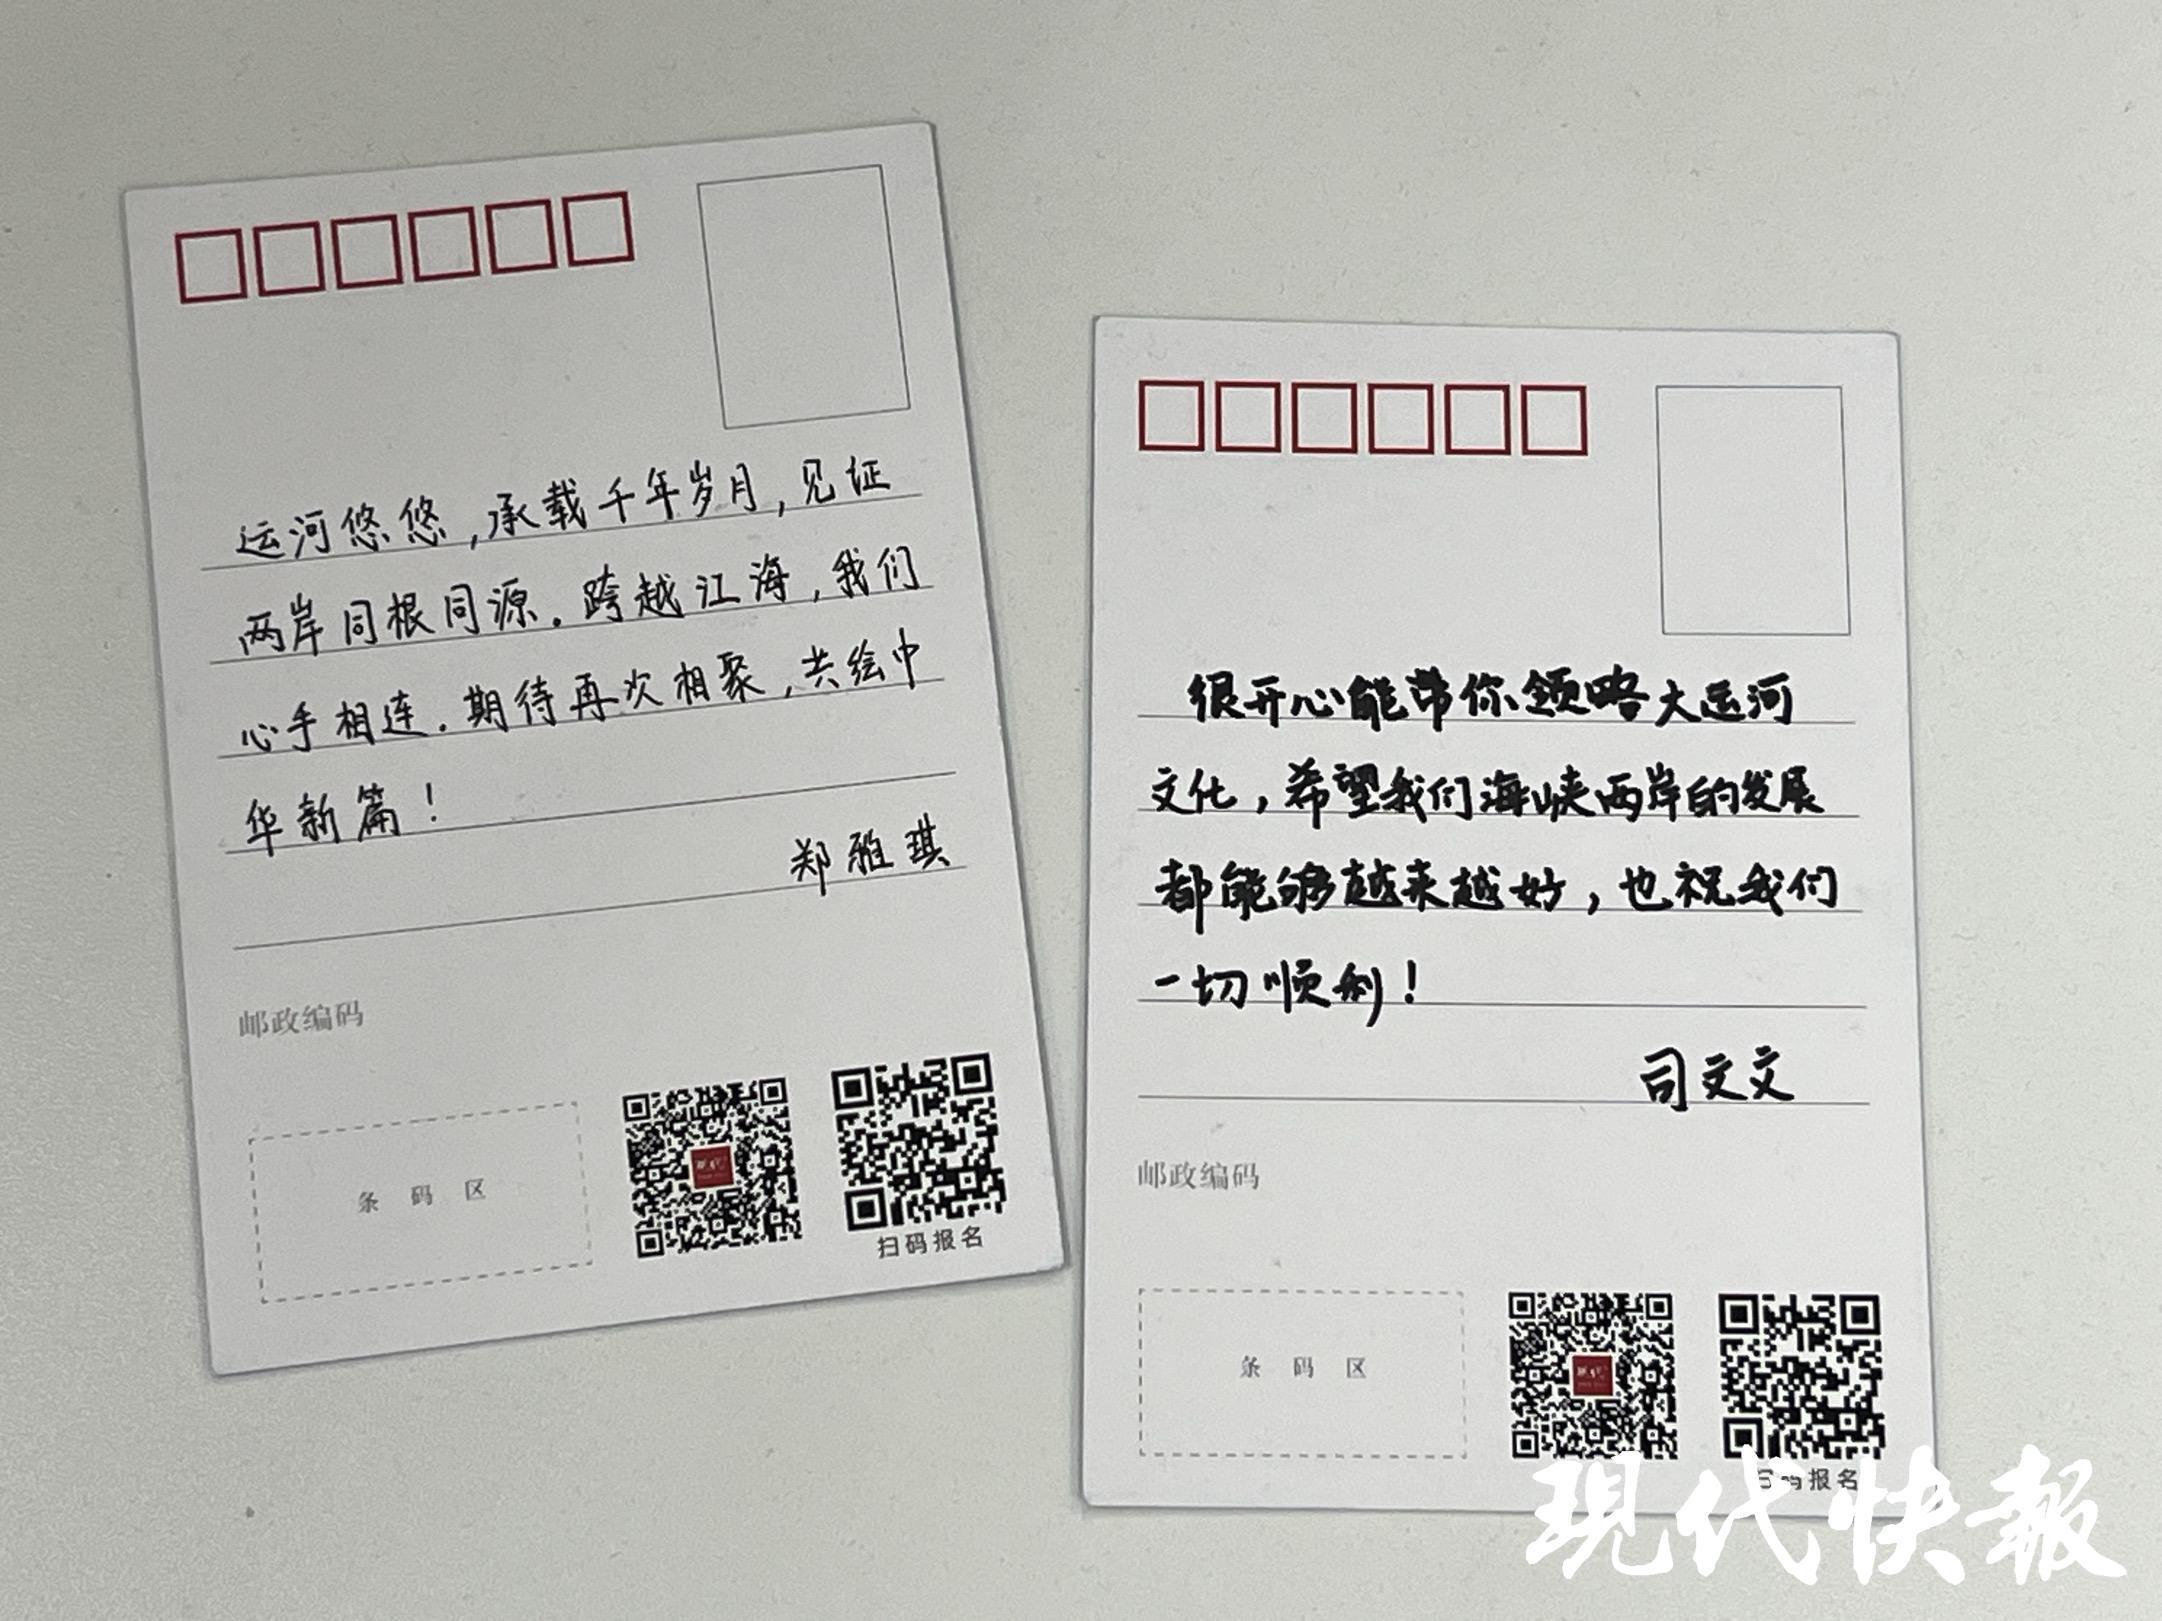 运河悠悠,承载千年岁月,见证
两岸同根同源.跨越江海,我们
心手相连.期待再次相聚,共绘中
华新篇!
郑雅琪
邮政编码
条码区
扫码报名
很开心能带你领略大运河
文化,希望我们海峡两岸的发展
都能够越来越好,也祝我们
一切顺利!
司文文
邮政编码
条码区
扫码报名
现代快報